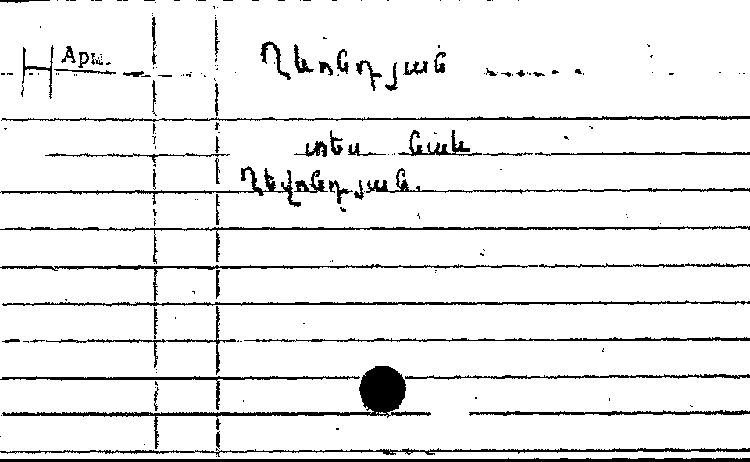 Арм. Ղևոնդյան
տես նաև
Ղեվոնդյան.